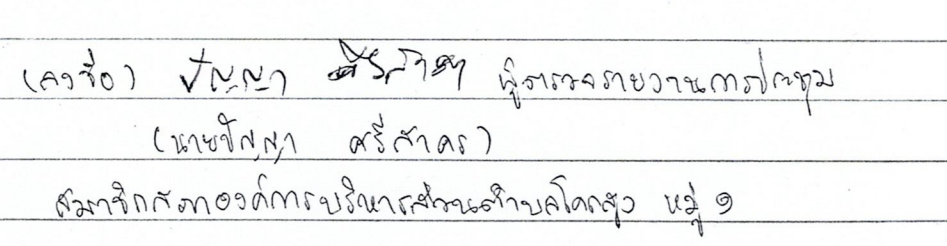 (ลงชื่อ) ปัญญา ศรีสาคร ผู้ตรวจรายงานการประชุม
(นายปัญญา ศรีสาคร)
สมาชิกสภาองค์การบริหารส่วนตำบลโคกสูง หมู่ ๑